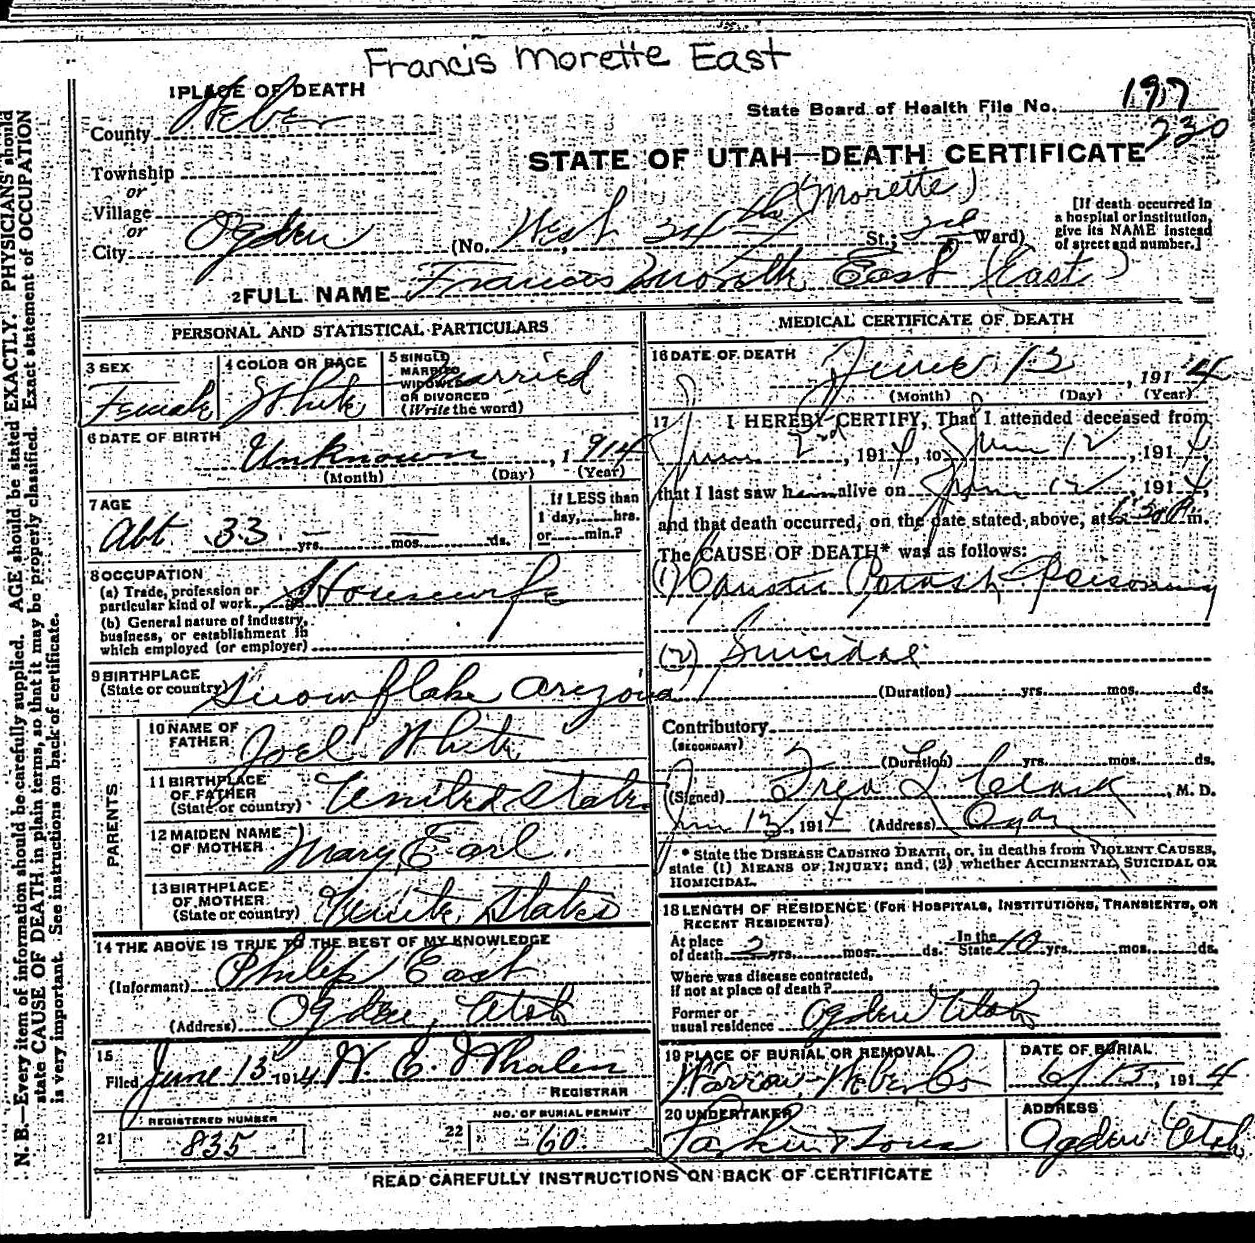 Francis Morette East
1 PLACE OF DEATH
County Weber
State Board of Health File No. 1917
230
Township
or
Village
or
City Ogden
STATE OF UTAH—DEATH CERTIFICATE
(Morette)
(No. West 24th St.; 3rd Ward)
[If death occurred in
a hospital or institution,
give its NAME instead
of street and number.]
2 FULL NAME Francis East (East)
PERSONAL AND STATISTICAL PARTICULARS
3 SEX
Female
4 COLOR OR RACE
White
5 SINGLE
MARRIED
WIDOWED
OR DIVORCED
(Write the word)
married
6 DATE OF BIRTH
Unknown, 1 914
(Month) (Day) (Year)
7 AGE
Abt. 33 yrs. — mos. — ds.
If LESS than
1 day, hrs.
or min.?
8 OCCUPATION
(a) Trade, profession or
particular kind of work Housewife
(b) General nature of industry,
business, or establishment in
which employed (or employer)
9 BIRTHPLACE
(State or country) Snowflake Arizona
PARENTS
10 NAME OF
FATHER Joel White
11 BIRTHPLACE
OF FATHER
(State or country) United States
12 MAIDEN NAME
OF MOTHER Mary Earl.
13 BIRTHPLACE
OF MOTHER
(State or country) States
14 THE ABOVE IS TRUE TO THE BEST OF MY KNOWLEDGE
(Informant) Philip East
(Address) Ogden, Utah
15
Filed June 13 1914 W. E. Whalen
REGISTRAR
REGISTERED NUMBER
21 835
NO. OF BURIAL PERMIT
22 60
MEDICAL CERTIFICATE OF DEATH
16 DATE OF DEATH
June 13, 1914
(Month) (Day) (Year)
17 I HEREBY CERTIFY, That I attended deceased from
June 2nd, 1914, to June 12, 1914,
that I last saw h alive on June 12, 1914,
and that death occurred, on the date stated above, at m.
The CAUSE OF DEATH* was as follows:
(1) Caustic Potash Poisoning
(2) Suicidal
(Duration) yrs. mos. ds.
Contributory
(SECONDARY)
(Duration) yrs. mos. ds.
(Signed) Fred Clark, M. D.
June 13, 1914 (Address)
* State the DISEASE CAUSING DEATH, or, in deaths from VIOLENT CAUSES,
state (1) MEANS OF INJURY; and (2) whether ACCIDENTAL, SUICIDAL OR
HOMICIDAL.
18 LENGTH OF RESIDENCE (FOR HOSPITALS, INSTITUTIONS, TRANSIENTS, OR
RECENT RESIDENTS)
At place
of death 2 yrs. mos. ds.
In the
State 10 yrs. mos. ds.
Where was disease contracted,
if not at place of death?
Former or
usual residence Ogden Utah
19 PLACE OF BURIAL OR REMOVAL
Warren, Weber Co
DATE OF BURIAL
6/13, 1914
20 UNDERTAKER
ADDRESS
Ogden Utah
READ CAREFULLY INSTRUCTIONS ON BACK OF CERTIFICATE
N. B.—Every item of information should be carefully supplied. AGE should be stated EXACTLY. PHYSICIANS should
state CAUSE OF DEATH in plain terms, so that it may be properly classified. Exact statement of OCCUPATION
is very important. See instructions on back of certificate.